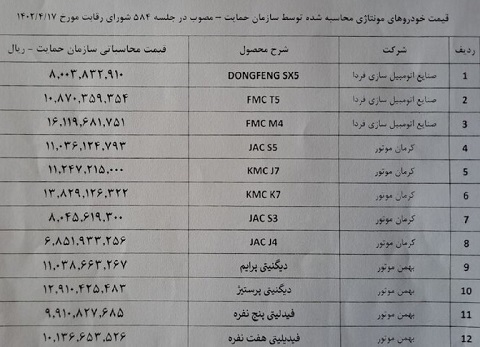 قیمت خودروهای مونتاژی محاسبه شده توسط سازمان حمایت – مصوب در جلسه ۵۸۴ شورای رقابت مورخ ۱۴۰۲/۴/۱۷
ردیف شرکت شرح محصول قیمت محاسباتی سازمان حمایت - ریال
1 صنایع اتومبیل سازی فردا DONGFENG SX5 ۸,۰۰۳,۸۳۲,۹۱۰
2 صنایع اتومبیل سازی فردا FMC T5 ۱۰,۸۷۰,۳۵۹,۳۵۴
3 صنایع اتومبیل سازی فردا FMC M4 ۱۶,۱۱۹,۶۸۱,۷۵۱
4 کرمان موتور JAC S5 ۱۱,۰۳۶,۱۲۴,۷۹۳
5 کرمان موتور KMC J7 ۱۱,۲۴۷,۲۱۵,۰۰۰
6 کرمان موتور KMC K7 ۱۳,۸۲۹,۱۲۶,۳۲۲
7 کرمان موتور JAC S3 ۸,۰۴۵,۶۱۹,۳۰۰
8 کرمان موتور JAC J4 ۶,۸۵۱,۹۳۳,۲۵۶
9 بهمن موتور دیگنیتی پرایم ۱۱,۰۳۸,۶۶۳,۲۶۷
10 بهمن موتور دیگنیتی پرستیژ ۱۲,۹۱۰,۴۲۵,۴۸۳
11 بهمن موتور فیدلیتی پنج نفره ۹,۹۱۰,۸۲۷,۶۸۵
12 بهمن موتور فیدیلیتی هفت نفره ۱۰,۱۳۶,۶۵۳,۵۲۶